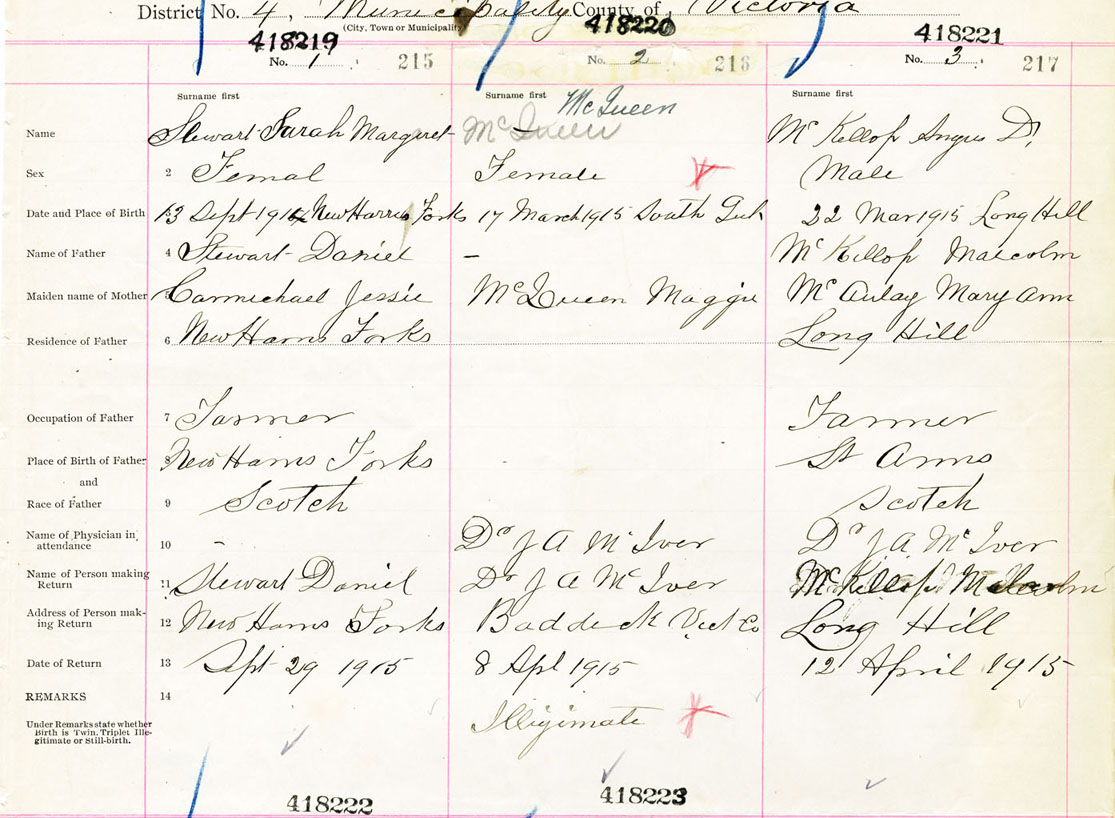 District No. 4, Municipality County of, Victoria
(City, Town or Municipality)
418219 418220 418221
No. 1 215 No. 2 216 No. 3 217
Surname first Surname first Surname first
McQueen
Name Stewart Sarah Margaret McQueen McKillop Angus D.
Sex 2 Femal Female Male
Date and Place of Birth 3 13 Sept 1914 New Harris Forks 17 March 1915 South 22 Mar 1915 Long Hill
Name of Father 4 Stewart Daniel – McKillop Malcolm
Maiden name of Mother 5 Carmichael Jessie McQueen Maggie McAulay Mary Ann
Residence of Father 6 New Harris Forks Long Hill
Occupation of Father 7 Farmer Farmer
Place of Birth of Father 8 New Harris Forks St Anns
and
Race of Father 9 Scotch Scotch
Name of Physician in attendance 10 - Dr J A McIver Dr J A McIver
Name of Person making Return 11 Stewart Daniel Dr J A McIver McKillop Malcolm
Address of Person making Return 12 New Harris Forks Baddeck Vict Co Long Hill
Date of Return 13 Sept 29 1915 8 Apl 1915 12 April 1915
REMARKS 14
Illigimate
Under Remarks state whether
Birth is Twin, Triplet Ille-
gitimate or Still-birth.
418222 418223